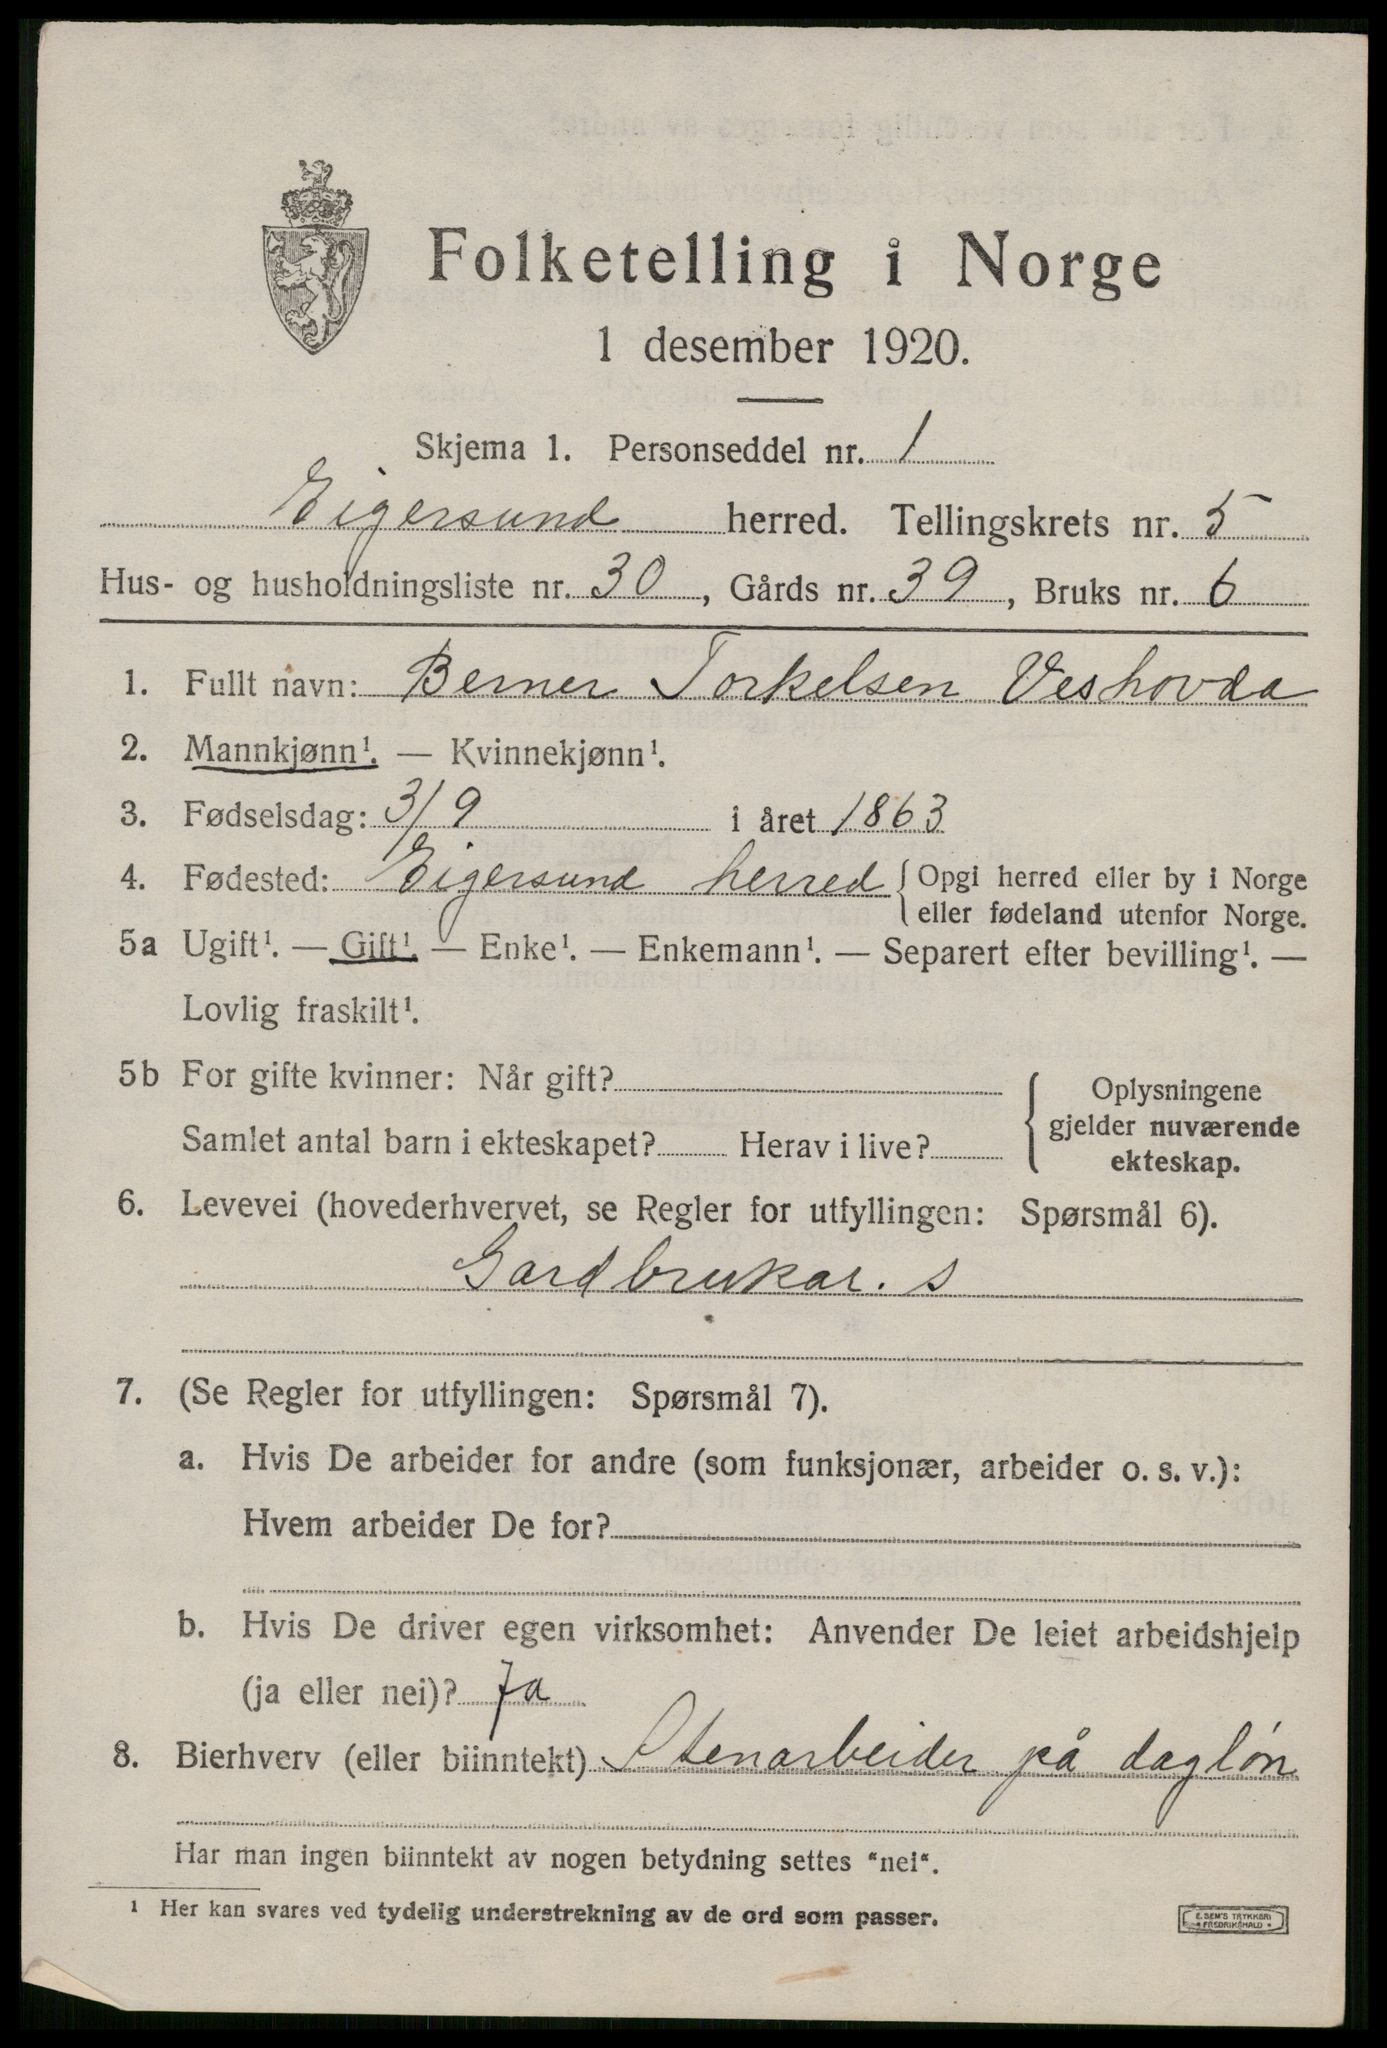 Folketelling i Norge
1 desember 1920.
Skjema 1. Personseddel nr. 1
Eigersund herred. Tellingskrets nr. 5
Hus- og husholdningsliste nr. 30, Gårds nr. 39, Bruks nr. 6
1. Fullt navn: Berner Torkelsen Veshovda
2. Mannkjønn¹. — Kvinnekjønn¹.
3. Fødselsdag: 3/9 i året 1863
4. Fødested: Eigersund herred { Opgi herred eller by i Norge
eller fødeland utenfor Norge.
5a Ugift¹. — Gift¹. — Enke¹. — Enkemann¹. — Separert efter bevilling¹. —
Lovlig fraskilt¹.
5b For gifte kvinner: Når gift?
Samlet antal barn i ekteskapet? Herav i live?
{ Oplysningene
gjelder nuværende
ekteskap.
6. Levevei (hovederhvervet, se Regler for utfyllingen: Spørsmål 6).
Gardbrukar. s
7. (Se Regler for utfyllingen: Spørsmål 7).
a. Hvis De arbeider for andre (som funksjonær, arbeider o. s. v.):
Hvem arbeider De for?
b. Hvis De driver egen virksomhet: Anvender De leiet arbeidshjelp
(ja eller nei)? Ja
8. Bierhverv (eller biinntekt) Stenarbeider på dagløn
Har man ingen biinntekt av nogen betydning settes "nei".
¹ Her kan svares ved tydelig understrekning av de ord som passer.
E. SEM'S TRYKKERI
FREDRIKSHALD